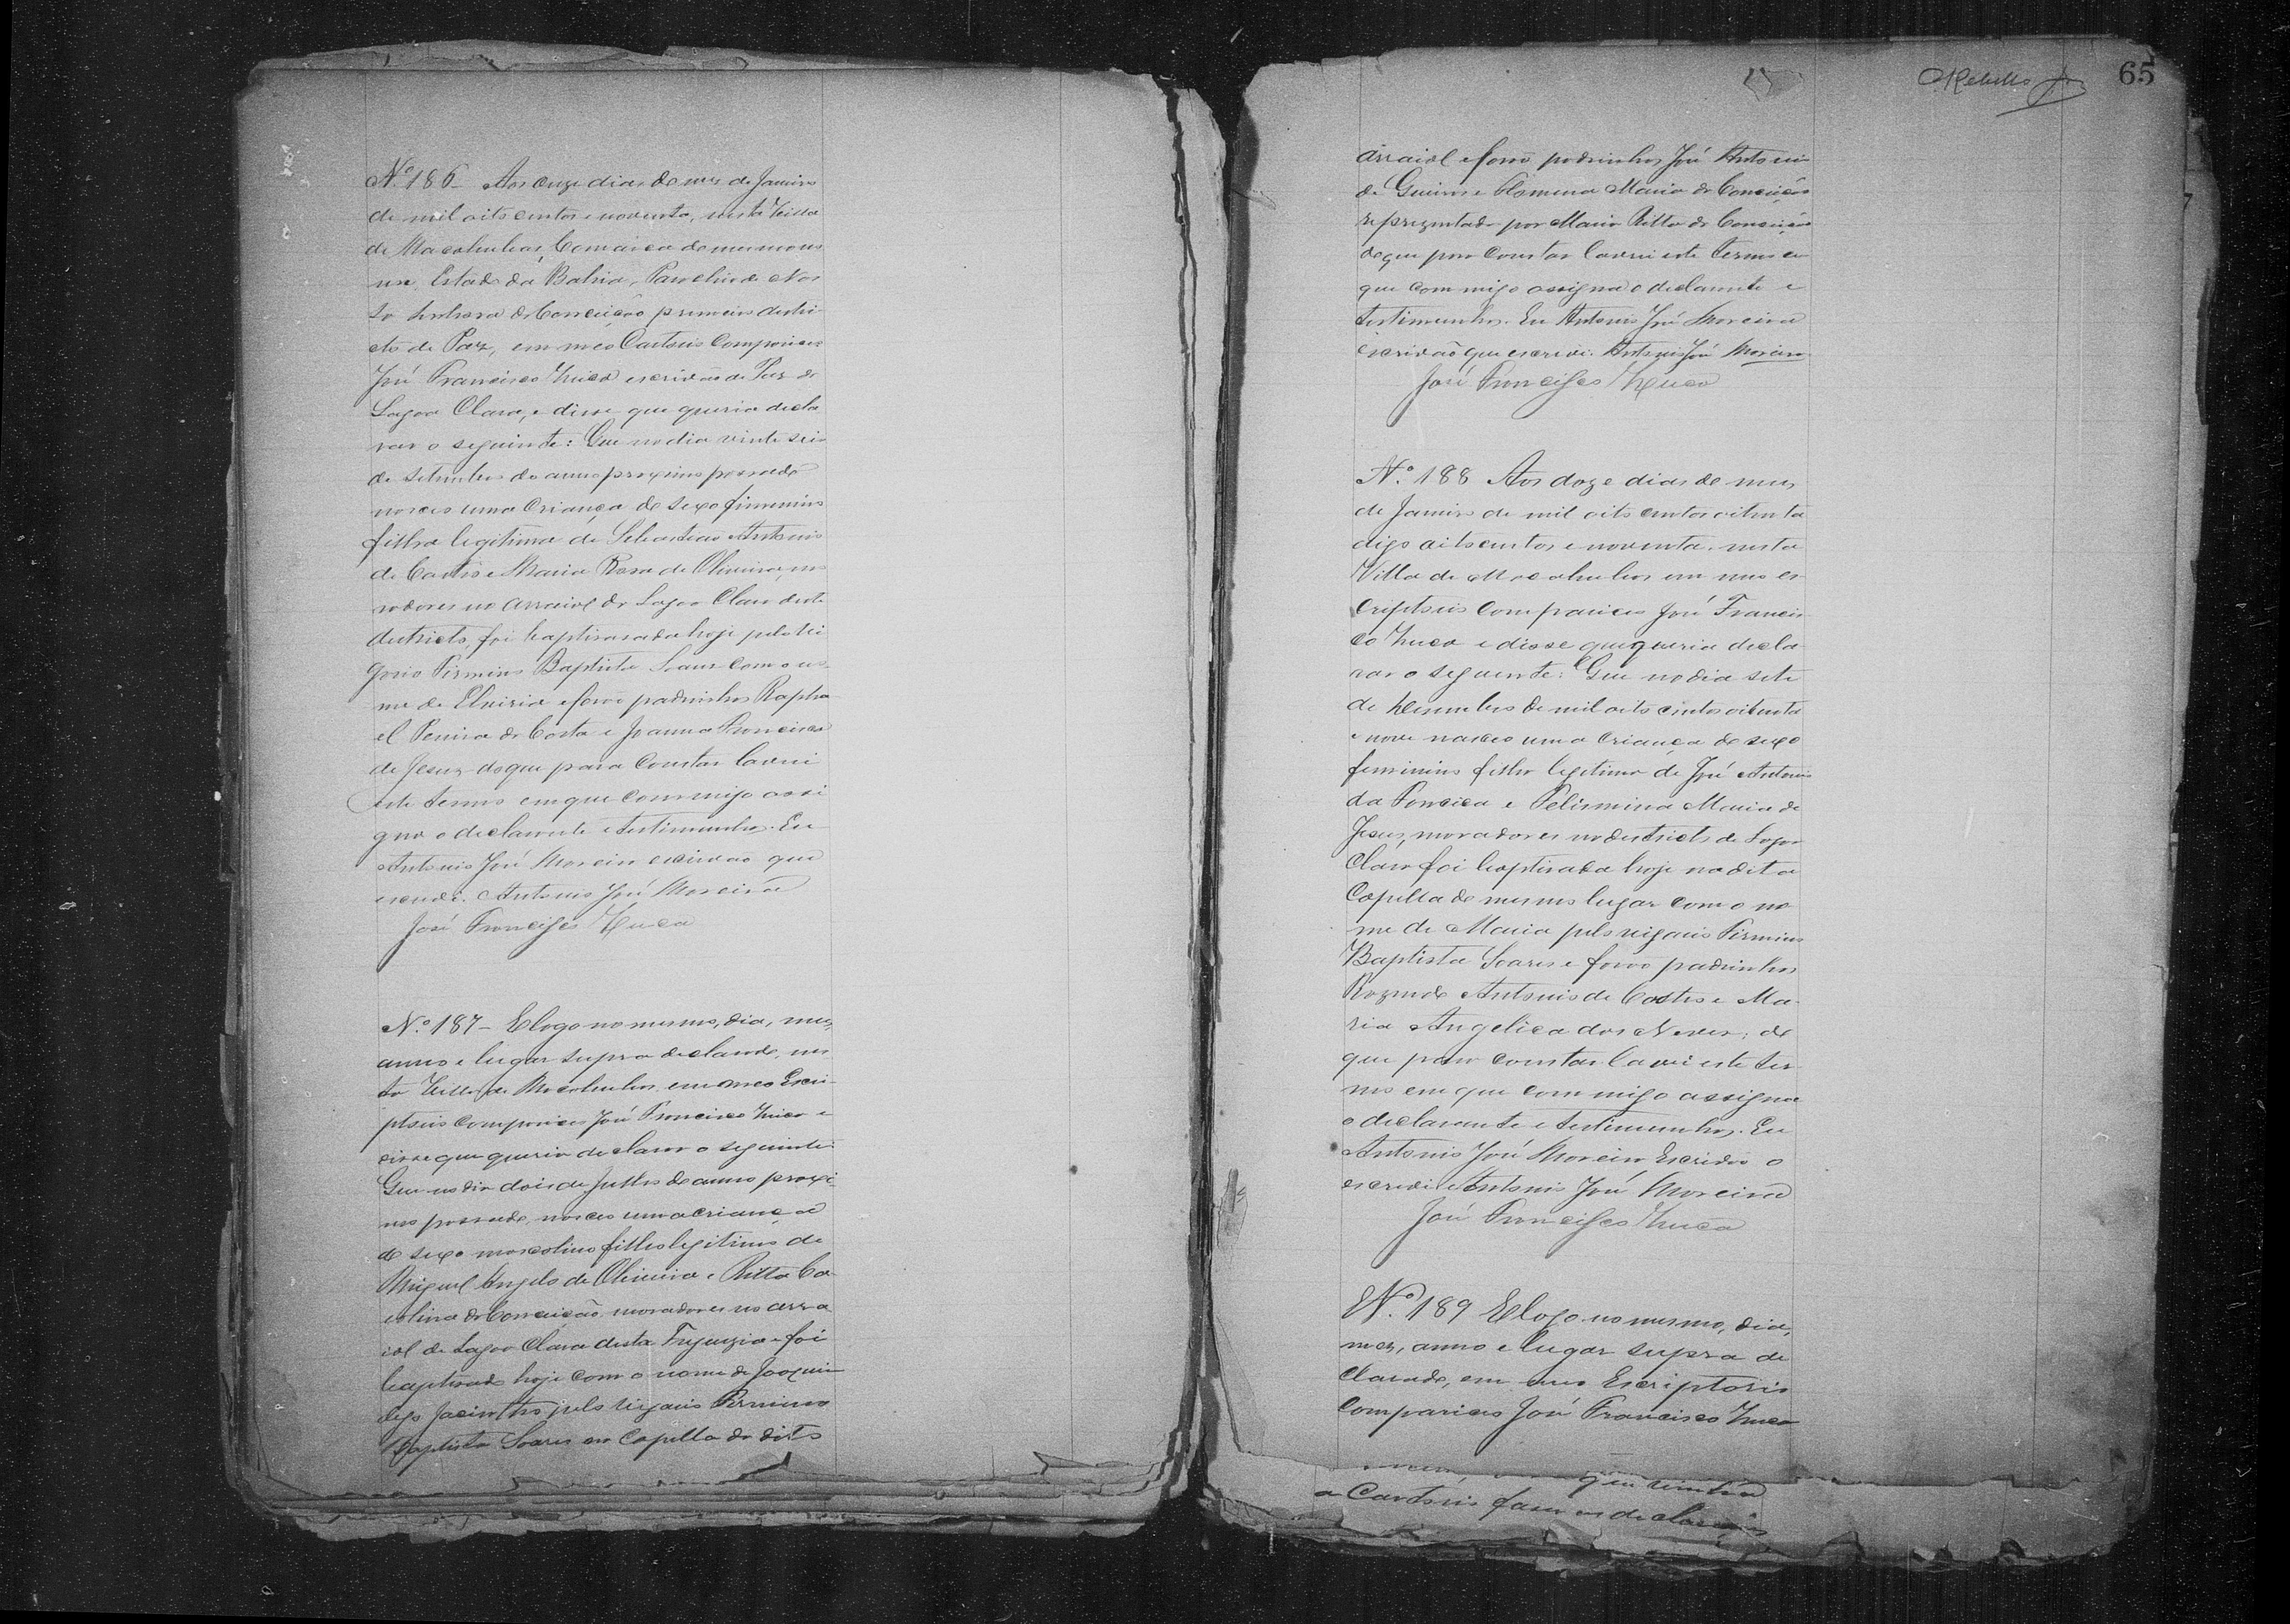 Nº 186 - Aos onze dias do mez de Janeiro
de mil oito centos e noventa, nesta Villa
de Macahubas, Comarca do mesmo no
me, Estado da Bahia, Parochia de Nos
sa Senhora da Conceição primeiro distri
cto de Paz, em meo Cartorio compareceo
José Francisco Zuca escrivão de Paz da
Lagoa Clara, e disse que queria decla
rar o seguinte: Que no dia vinte seis
de Setembro do anno proximo passado
nasceo uma Criança do sexo fiminino
filha legitima de Sebastiao Antonio
de Castro e Maria Rosa de Oliveira, mo
radores no arraial da Lagoa Clara deste
districto, foi baptisada hoje pelo Vi
gario Firmino Baptista Soares com o no
me de Elviria e foraõ padrinhos Rapha
el Pereira da Costa e Joanna Francisca
de Jesus do que para Constar lavrei
este termo em que commigo assi
gna o declarante e testimunhas. Eu
Antonio José Moreira escrivaõ que
escrevi. Antonio José Moreira
José Francisco Zuca
Nº 187 - E logo no mesmo, dia, mez,
anno e lugar supra declarado, nes
ta Villa de Macahubas em meo Escri-
ptorio compareceo José Francisco Zuca e
disse que queria declarar o seguinte:
Que no dia dois de Julho do anno proxi-
mo passado, nasceo uma criança
do sexo mascolino filho legitimo de
Miguel Angelo de Oliveira e Ritta Ca
rolina da Conceição moradores no arra
ial da Lagoa Clara desta Freguezia e foi
baptisado hoje com o nome de Joaquim
digo Jacintho pelo Vigario Firmino
Baptista Soares na Capella do dito
Rebello Jor 65
arraial e foraõ padrinhos José Antonio
de Maria da Conceição
reprezentada por Maria Ritta da Conceição
do que para Constar lavrei este termo em
que com migo assigna o declarante e
testimunhas. Eu Antonio José Moreira
escrivaõ que escrevi. Antonio José Moreira
José Francisco Zuca
Nº 188 Aos doze dias do mez
de Janeiro de mil oito centos oitenta
digo oitocentos e noventa, nesta
Villa de Macahubas em meo es-
criptorio compareceo José Francis
co Zuca e disse que queria decla
rar o seguinte: Que no dia sete
de Dezembro de mil oito centos oitenta
e nove nasceo uma criança do sexo
feminino filha legitima de José Antonio
da Fonceca e Felismina Maria de
Jesus, moradores no districto de Lagoa
Clara foi baptisada hoje na dita
Capella do mesmo lugar com o no
me de Maria pelo vigario Firmino
Baptista Soares e foraõ padrinhos
Rozendo Antonio de Castro e Ma-
ria Angelica das Neves; do
que para constar lavrei este ter
mo em que com migo assigna
o declarante e testimunhas. Eu
Antonio José Moreira Escrivão o
escrevi. Antonio José Moreira
José Francisco Zuca
Nº 189 E logo no mesmo, dia,
mez, anno e lugar supra de
clarado, em meo Escriptorio
compareceo José Francisco Zuca
a Cartorio fazer as declarações